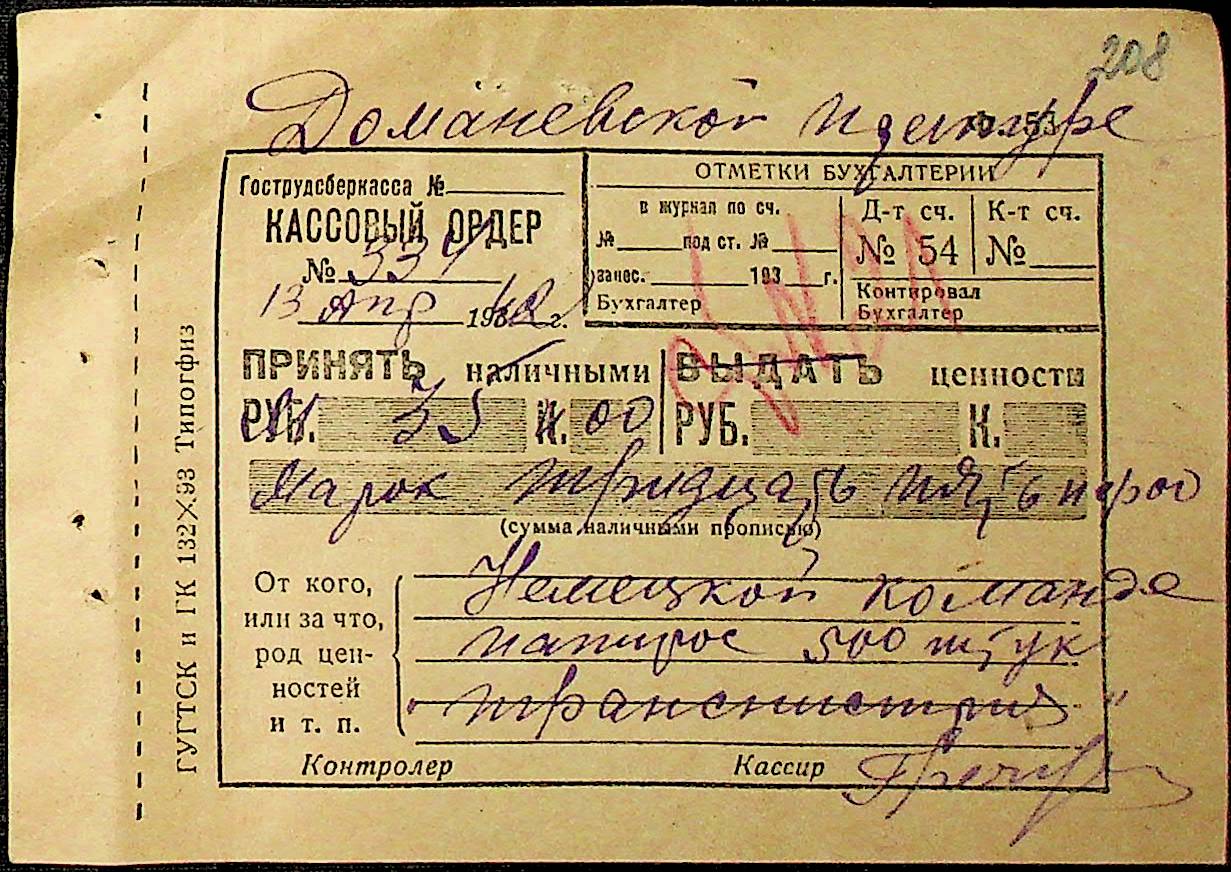 208
Доманевской претуре
Гострудсберкасса №
КАССОВЫЙ ОРДЕР
№ 334
13 Апр 1942 г.
ОТМЕТКИ БУХГАЛТЕРИИ
в журнал по сч.
№ под ст. №
занес. 193 г.
Бухгалтер
Д-т сч.
№ 54
К-т сч.
№
Контировал
Бухгалтер
ПРИНЯТЬ наличными
РУБ. 35 К. 00
ВЫДАТЬ ценности
РУБ. К.
Марок тридцать пять
(сумма наличными прописью)
От кого,
или за что,
род цен-
ностей
и т. п.
Немецкой команде
папирос 500 штук
"транснистрия"
Контролер
Кассир
ГУГТСК и ГК 132×93 Типогфиз